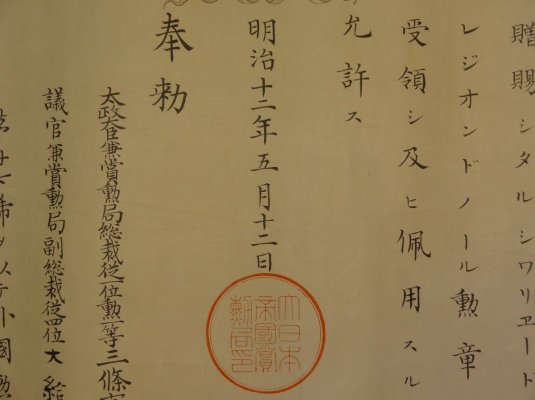 贈賜シタルシワリヱード
レジオンドノール勲章
受領シ及ヒ佩用スル
允許ス
明治十二年五月十二日
奉勅
太政大臣兼賞勲局総裁従一位勲一等三條
議官兼賞勲局副総裁従四位大給
大日本
帝國賞
勲局印